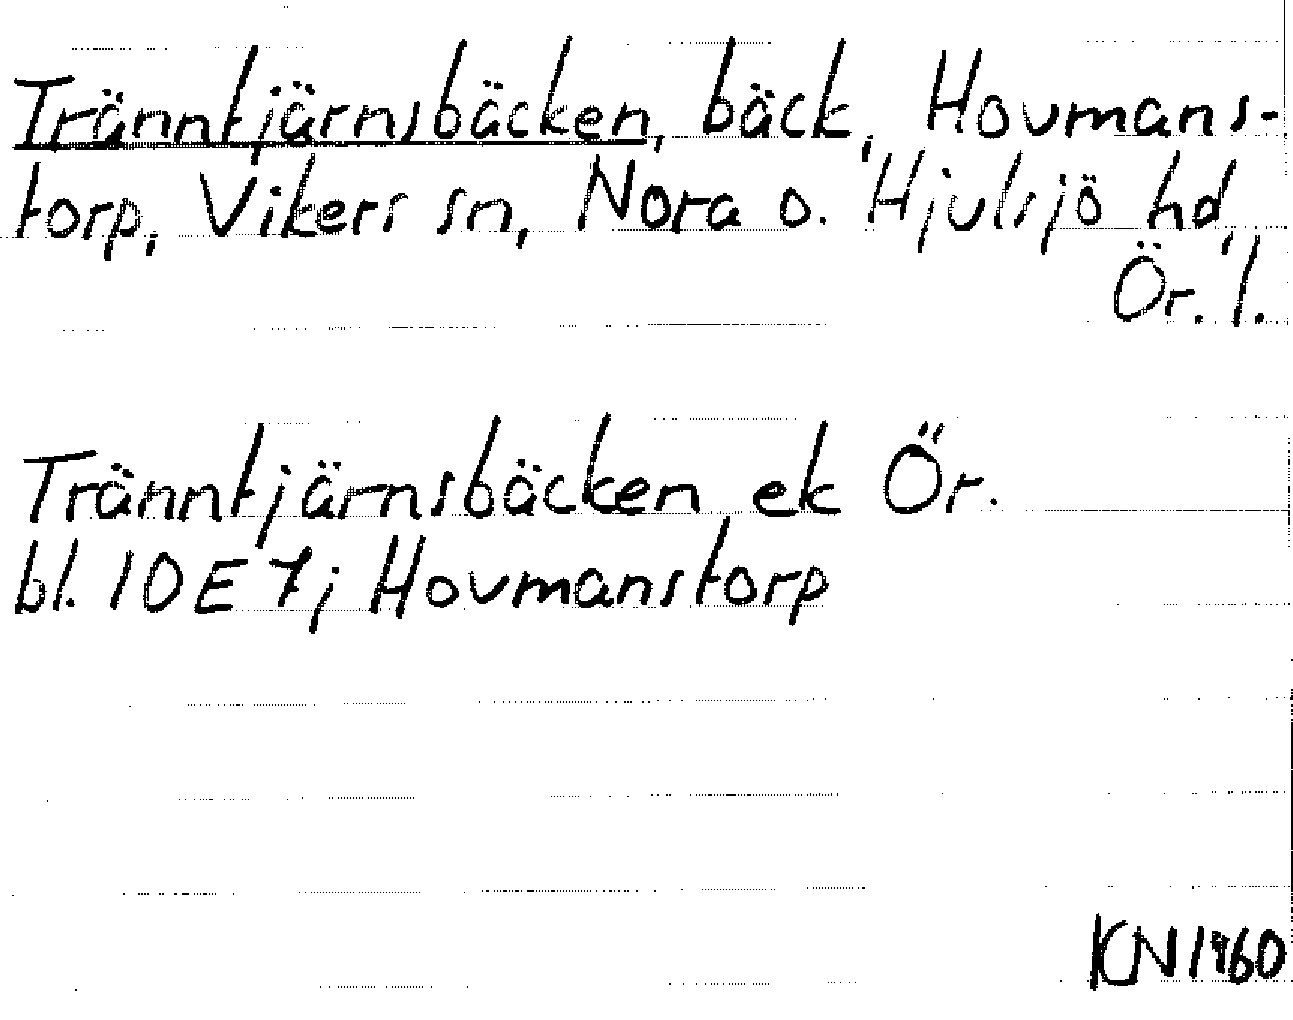 Tränntjärnsbäcken, bäck, Hovmans-
torp, Vikers sn, Nora o. Hjulsjö hd,
Ör. l.
Tränntjärnsbäcken ek Ör.
bl. 10E 7j Hovmanstorp
KN 1960